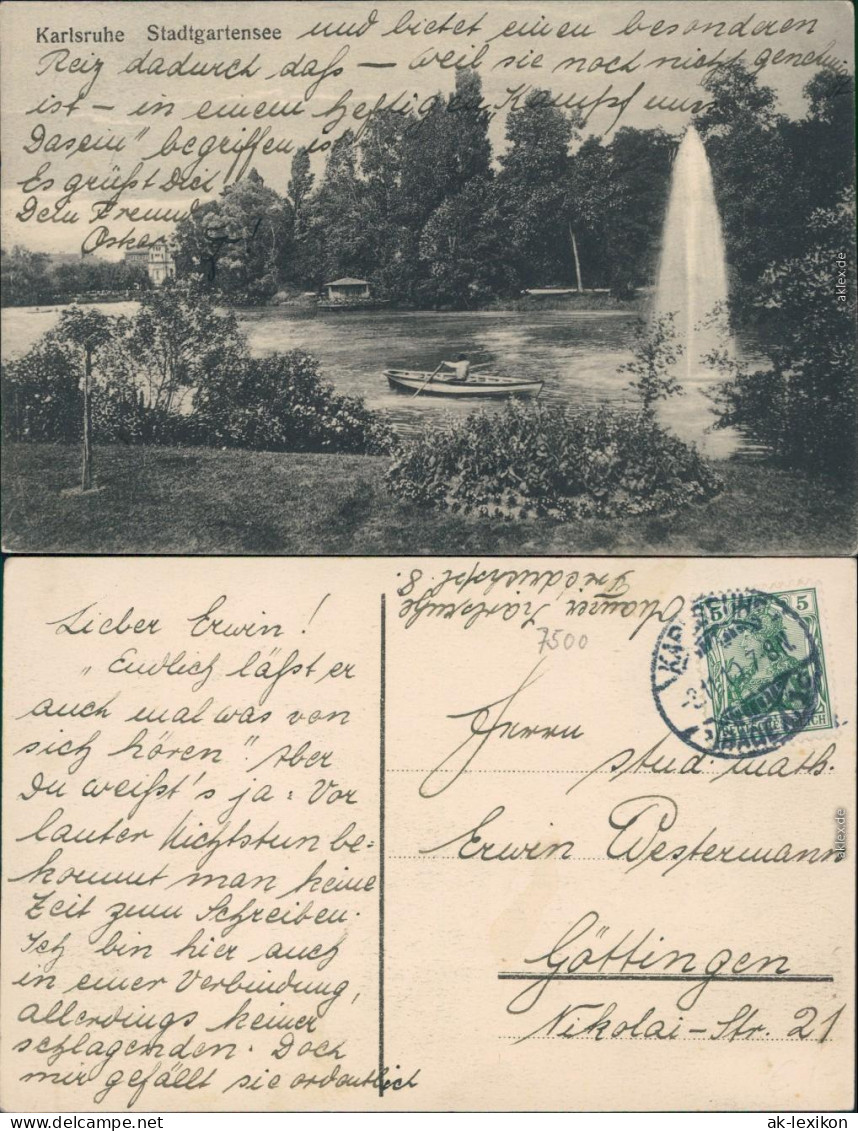 Karlsruhe Stadtgartensee
und bietet einen besonderen
Reiz dadurch daß — weil sie noch nicht genehmigt
ist — in einem heftigen „Kampf um's
Dasein" begriffen ist.
Es grüßt Dich
Dein Freund
Oskar
aklex.de
Lieber Erwin!
„Endlich läßt er
auch mal was von
sich hören". Aber
Du weißt's ja: Vor
lauter Nichtstun be=
kommt man keine
Zeit zum Schreiben.
Ich bin hier auch
in einer Verbindung,
allerdings keiner
schlagenden. Doch
mir gefällt sie ordentlich
Karlsruhe
8.
7500
5
KARLSRUHE
Herrn
stud. math.
Erwin Westermann
Göttingen
Nikolai-Str. 21
aklex.de
www.ansichtskarten-lexikon.de
ak-lexikon